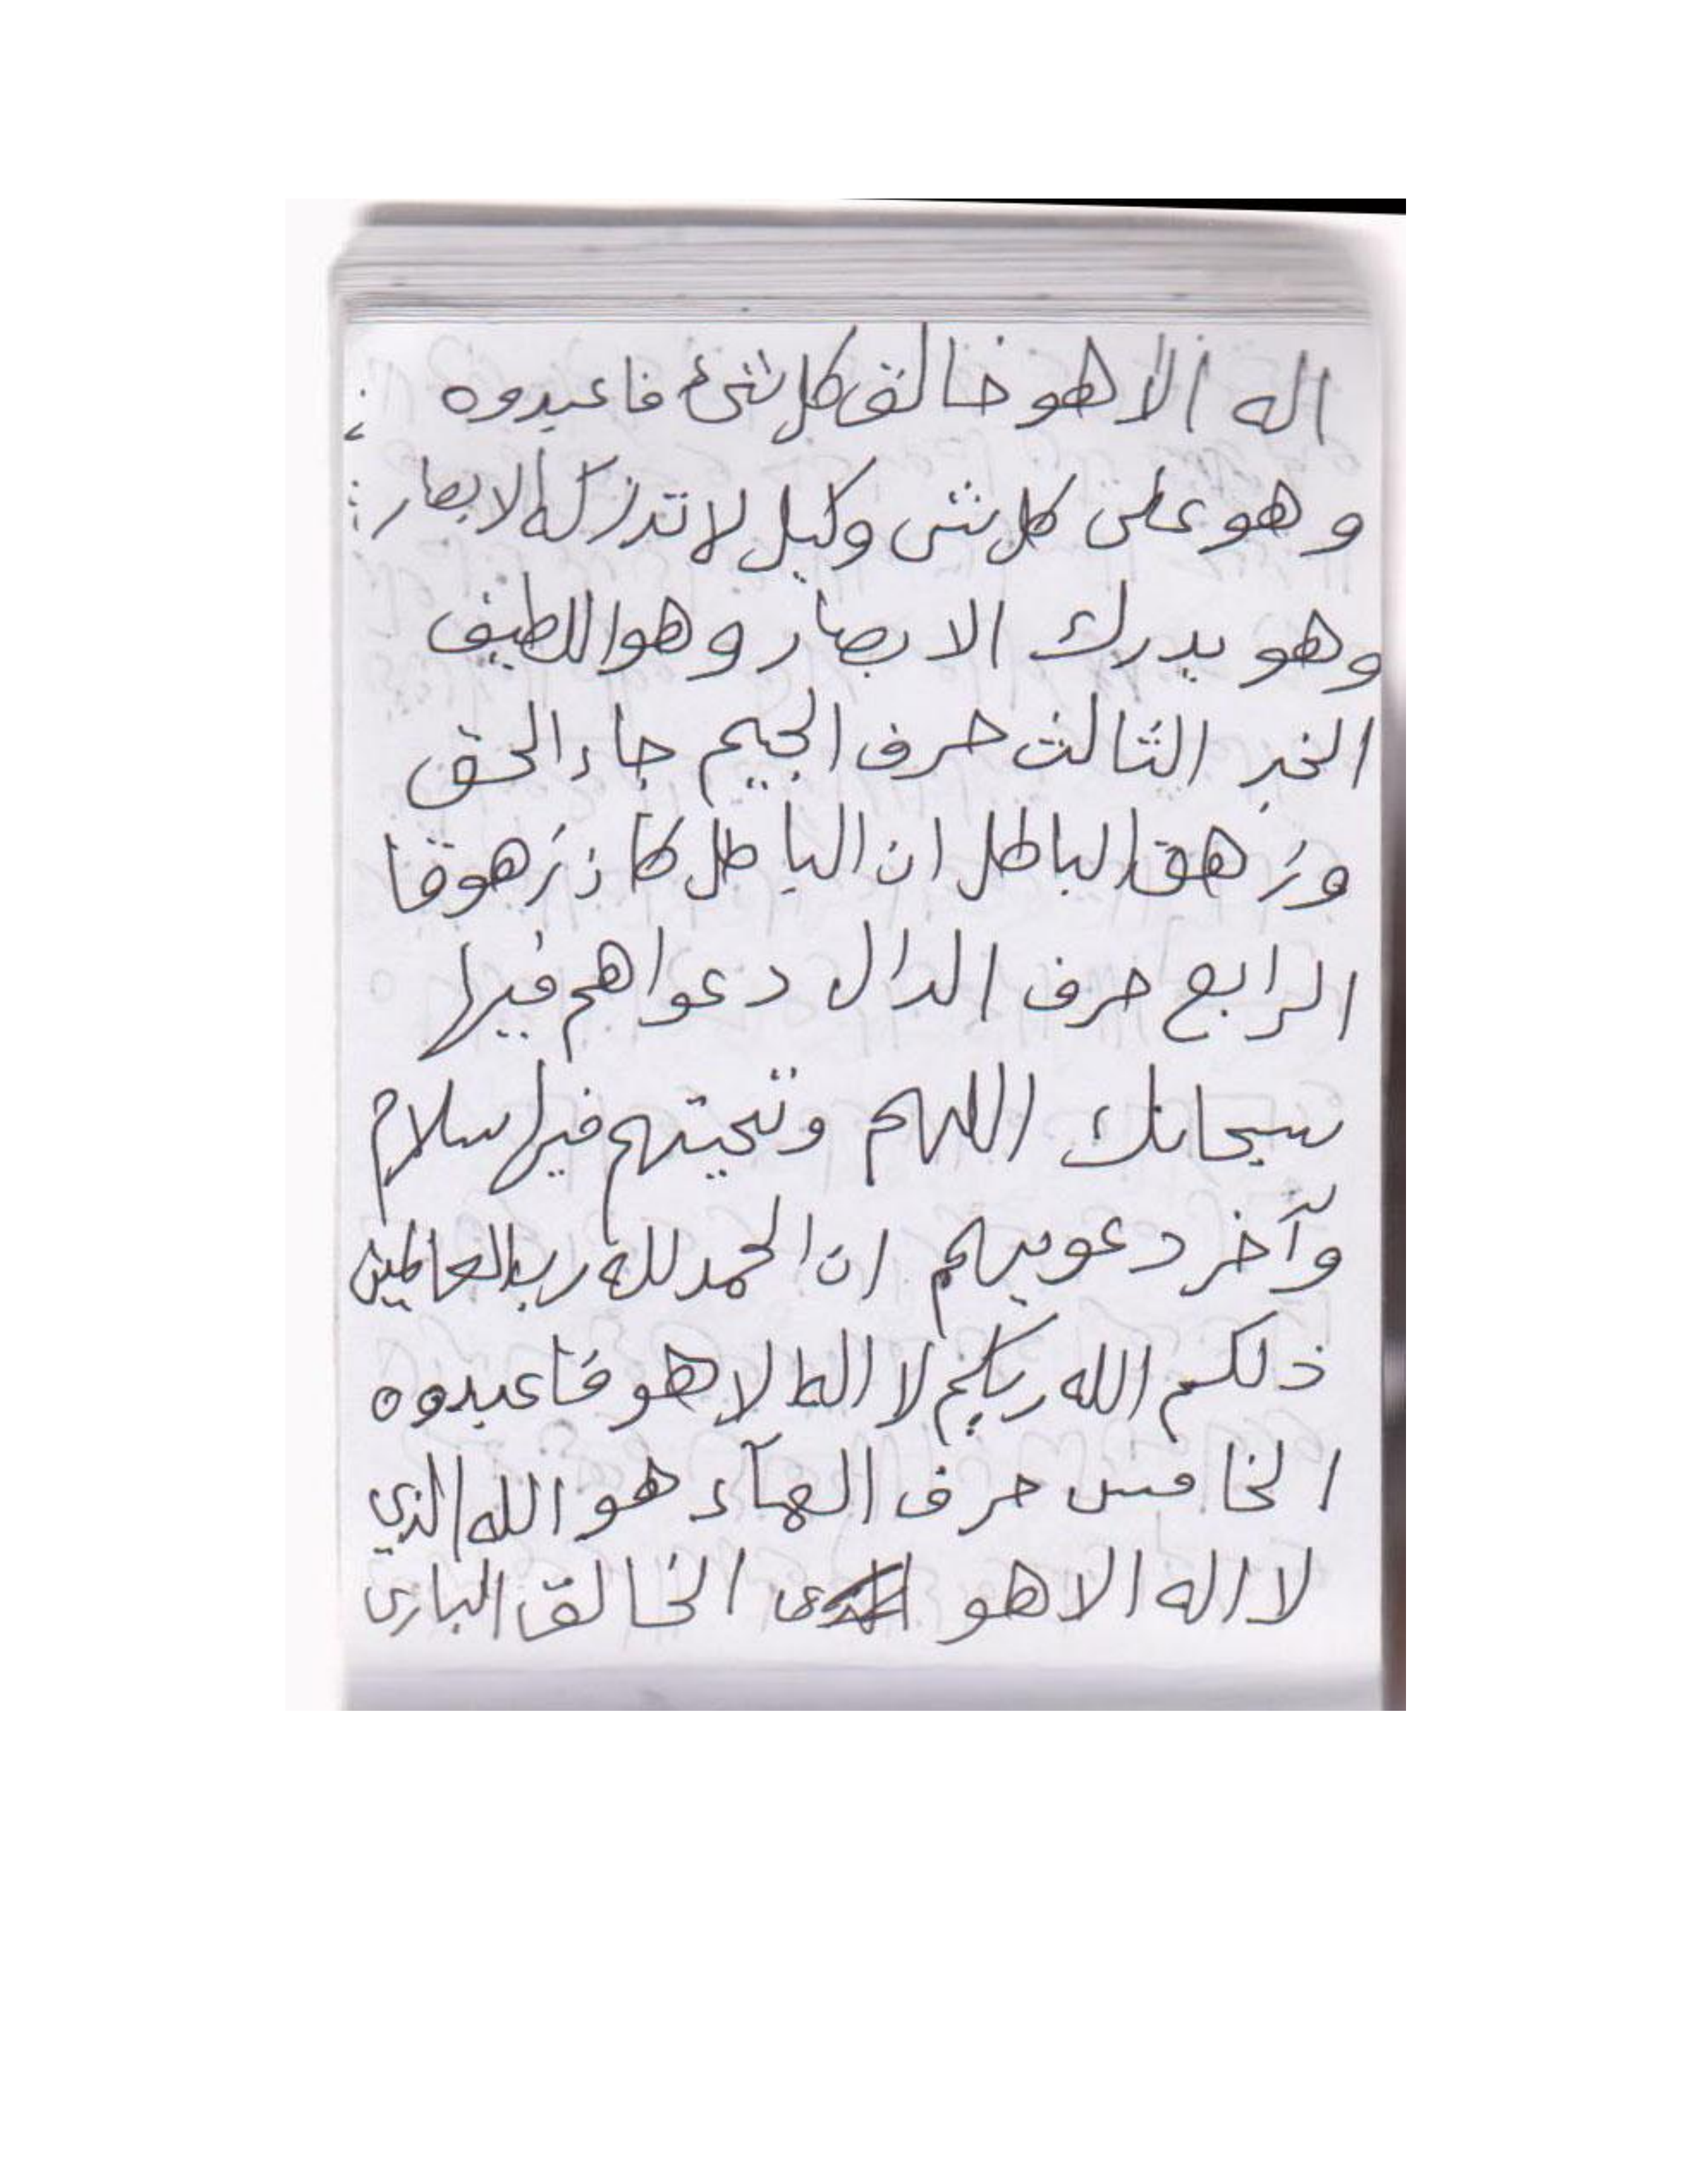 اله الا هو خالق كل شئ فاعبدوه
وهو على كل شى وكيل لا تدركه الابصار
وهو يدرك الابصار وهو اللطيف
الخبر الثالث حرف الجيم جاء الحق
وزهق الباطل ان الباطل كان زهوقا
الرابع حرف الدال دعواهم فيها
سبحانك اللهم وتحيتهم فيها سلام
وآخر دعويهم ان الحمد لله رب العالمين
ذلكم الله ربكم لا اله الا هو فاعبدوه
الخامس حرف الهآء هو الله الذي
لا اله الا هو الخالق البارى